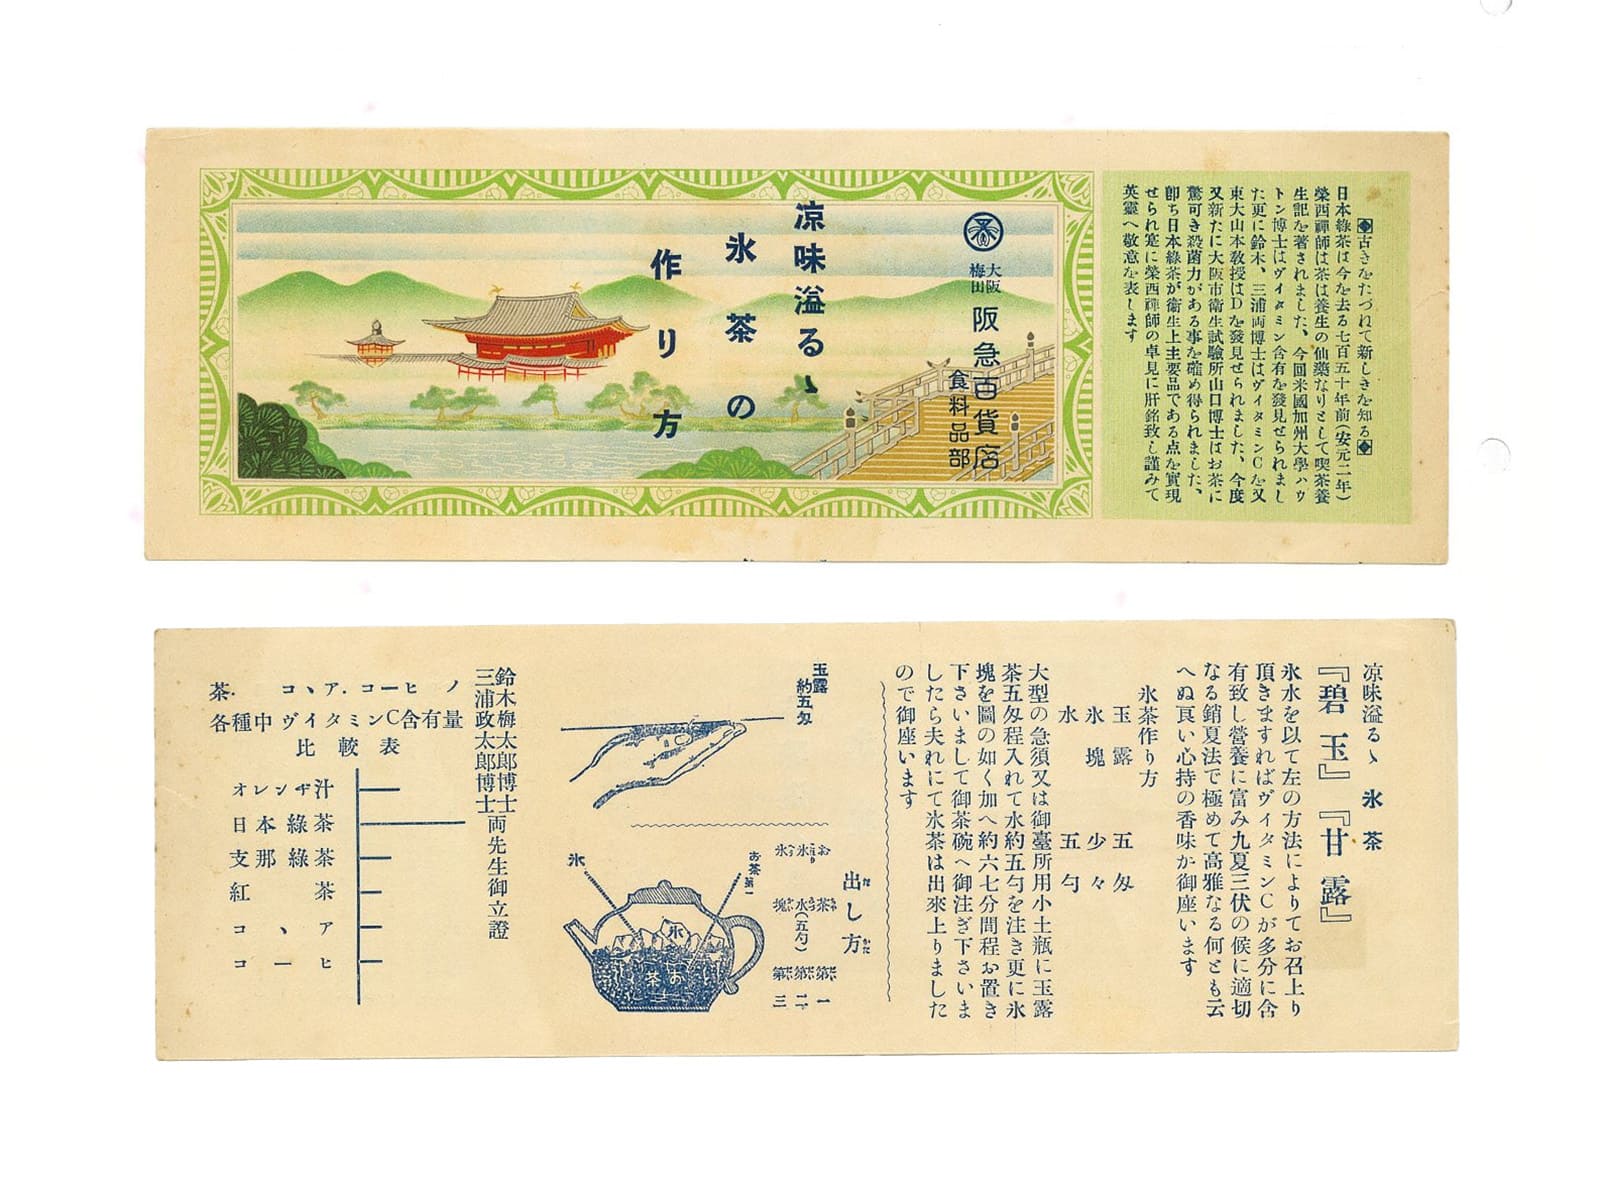 ◆古きをたづねて新しきを知る◆
日本綠茶は今を去る七百五十年前(安元二年)
榮西禪師は茶は養生の仙藥なりとして喫茶養
生記を著されました、今回米國加州大學ハウ
トン博士はヴィタミン含有を發見せられまし
た更に鈴木、三浦両博士はヴィタミンCを又
東大山本敎授はDを發見せられました、今度
又新たに大阪市衞生試驗所山口博士はお茶に
驚可き殺菌力がある事を確め得られました、
卽ち日本綠茶が衞生上主要品である点を實現
せられ寔に榮西禪師の卓見に肝銘致し謹みて
英靈へ敬意を表します
大阪
梅田
阪急百貨店
食料品部
凉味溢るゝ
氷茶の
作り方
凉味溢るゝ 氷茶
『碧玉』『甘露』
氷水を以て左の方法によりてお召上り
頂きますればヴィタミンCが多分に含
有致し營養に富み九夏三伏の候に適切
なる銷夏法で極めて高雅なる何とも云
へぬ良い心持の香味が御座います
氷茶作り方
玉露 五匁
氷塊 少々
水 五勺
大型の急須又は御臺所用小土瓶に玉露
茶五匁程入れて水約五勺を注き更に氷
塊を圖の如く加へ約六七分間程お置き
下さいまして御茶碗へ御注ぎ下さいま
したら夫れにて氷茶は出來上りました
ので御座います
玉露
約五匁
出し方
第一
第二 水(五勺)
第三
お茶第一
氷
氷
お茶
鈴木梅太郎博士
三浦政太郎博士
両先生御立證
茶.コヽア.コーヒノ
各種中ヴイタミンC含有量
比較表
オレンヂ汁
日本綠茶
支那綠茶
紅茶
コヽア
コーヒ